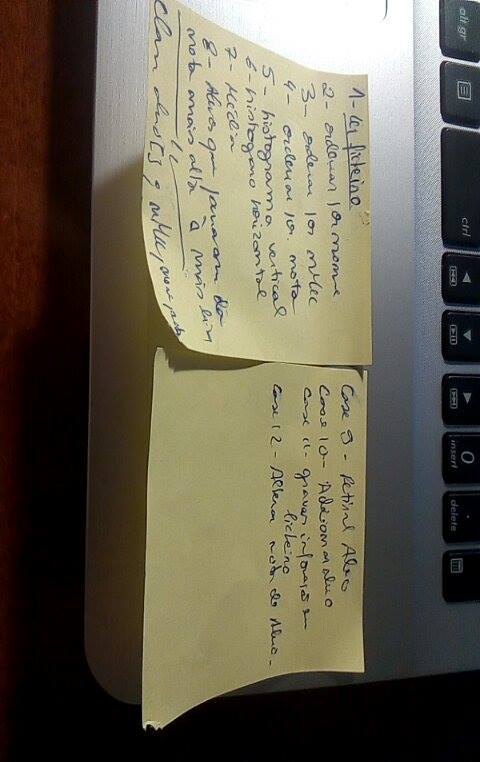 alt gr
ctrl
0
insert
.
delete
1- Ler ficheiro
2- ordenar por nome
3- ordenar por nMec
4- ordenar por nota
5- histograma vertical
6- histograma horizontal
7- Média
8- Alunos que passaram da
nota mais alta à mais
Class aluno[] nMec, nome, nota
Case 9- Retirar Aluno
Case 10- Adicionar aluno
Case 11- gravar informação em
ficheiro
Case 12- Alterar nota do Aluno.